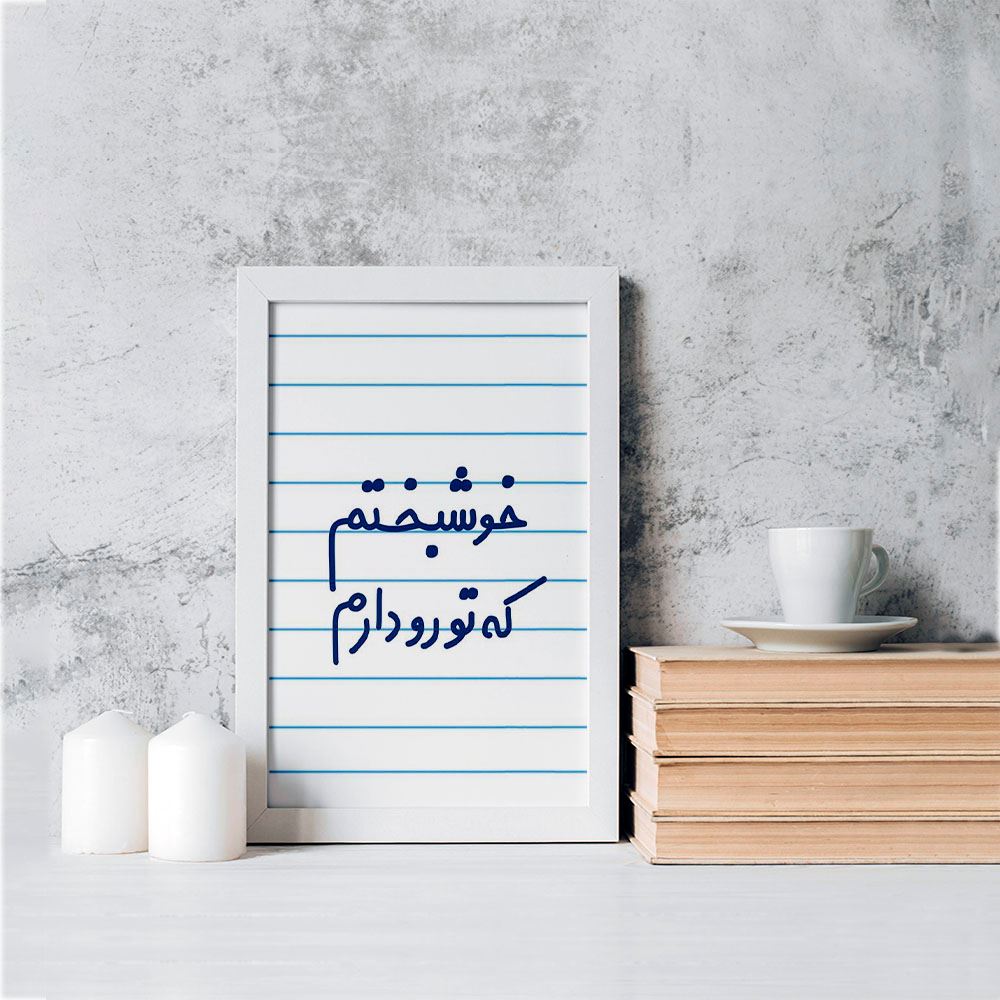 خوشبختم
که تو رو دارم